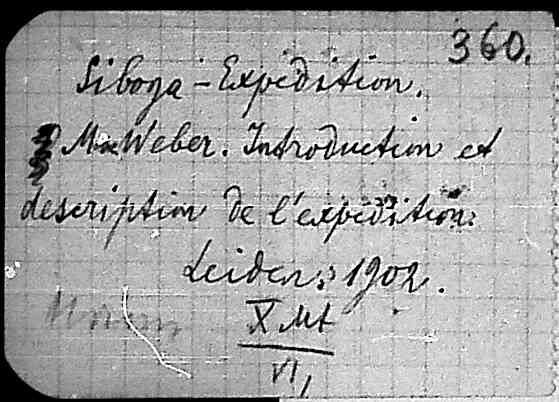 360.
Siboga-Expedition.
Max Weber. Introduction et
description de l'expédition.
Leiden: 1902.
X Mt
VI,